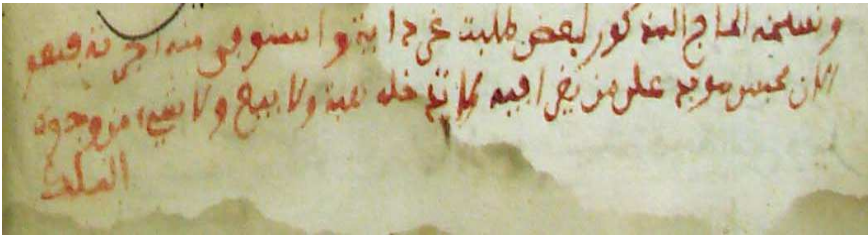 ونسخه الحاج المذكور لبعض طلبت غرداية واستوفى منه أجرته فهو
الآن محبس موبد على من يقرا فيه فلا تدخله هبة ولا بيع ولا شيء من وجوه
الملك